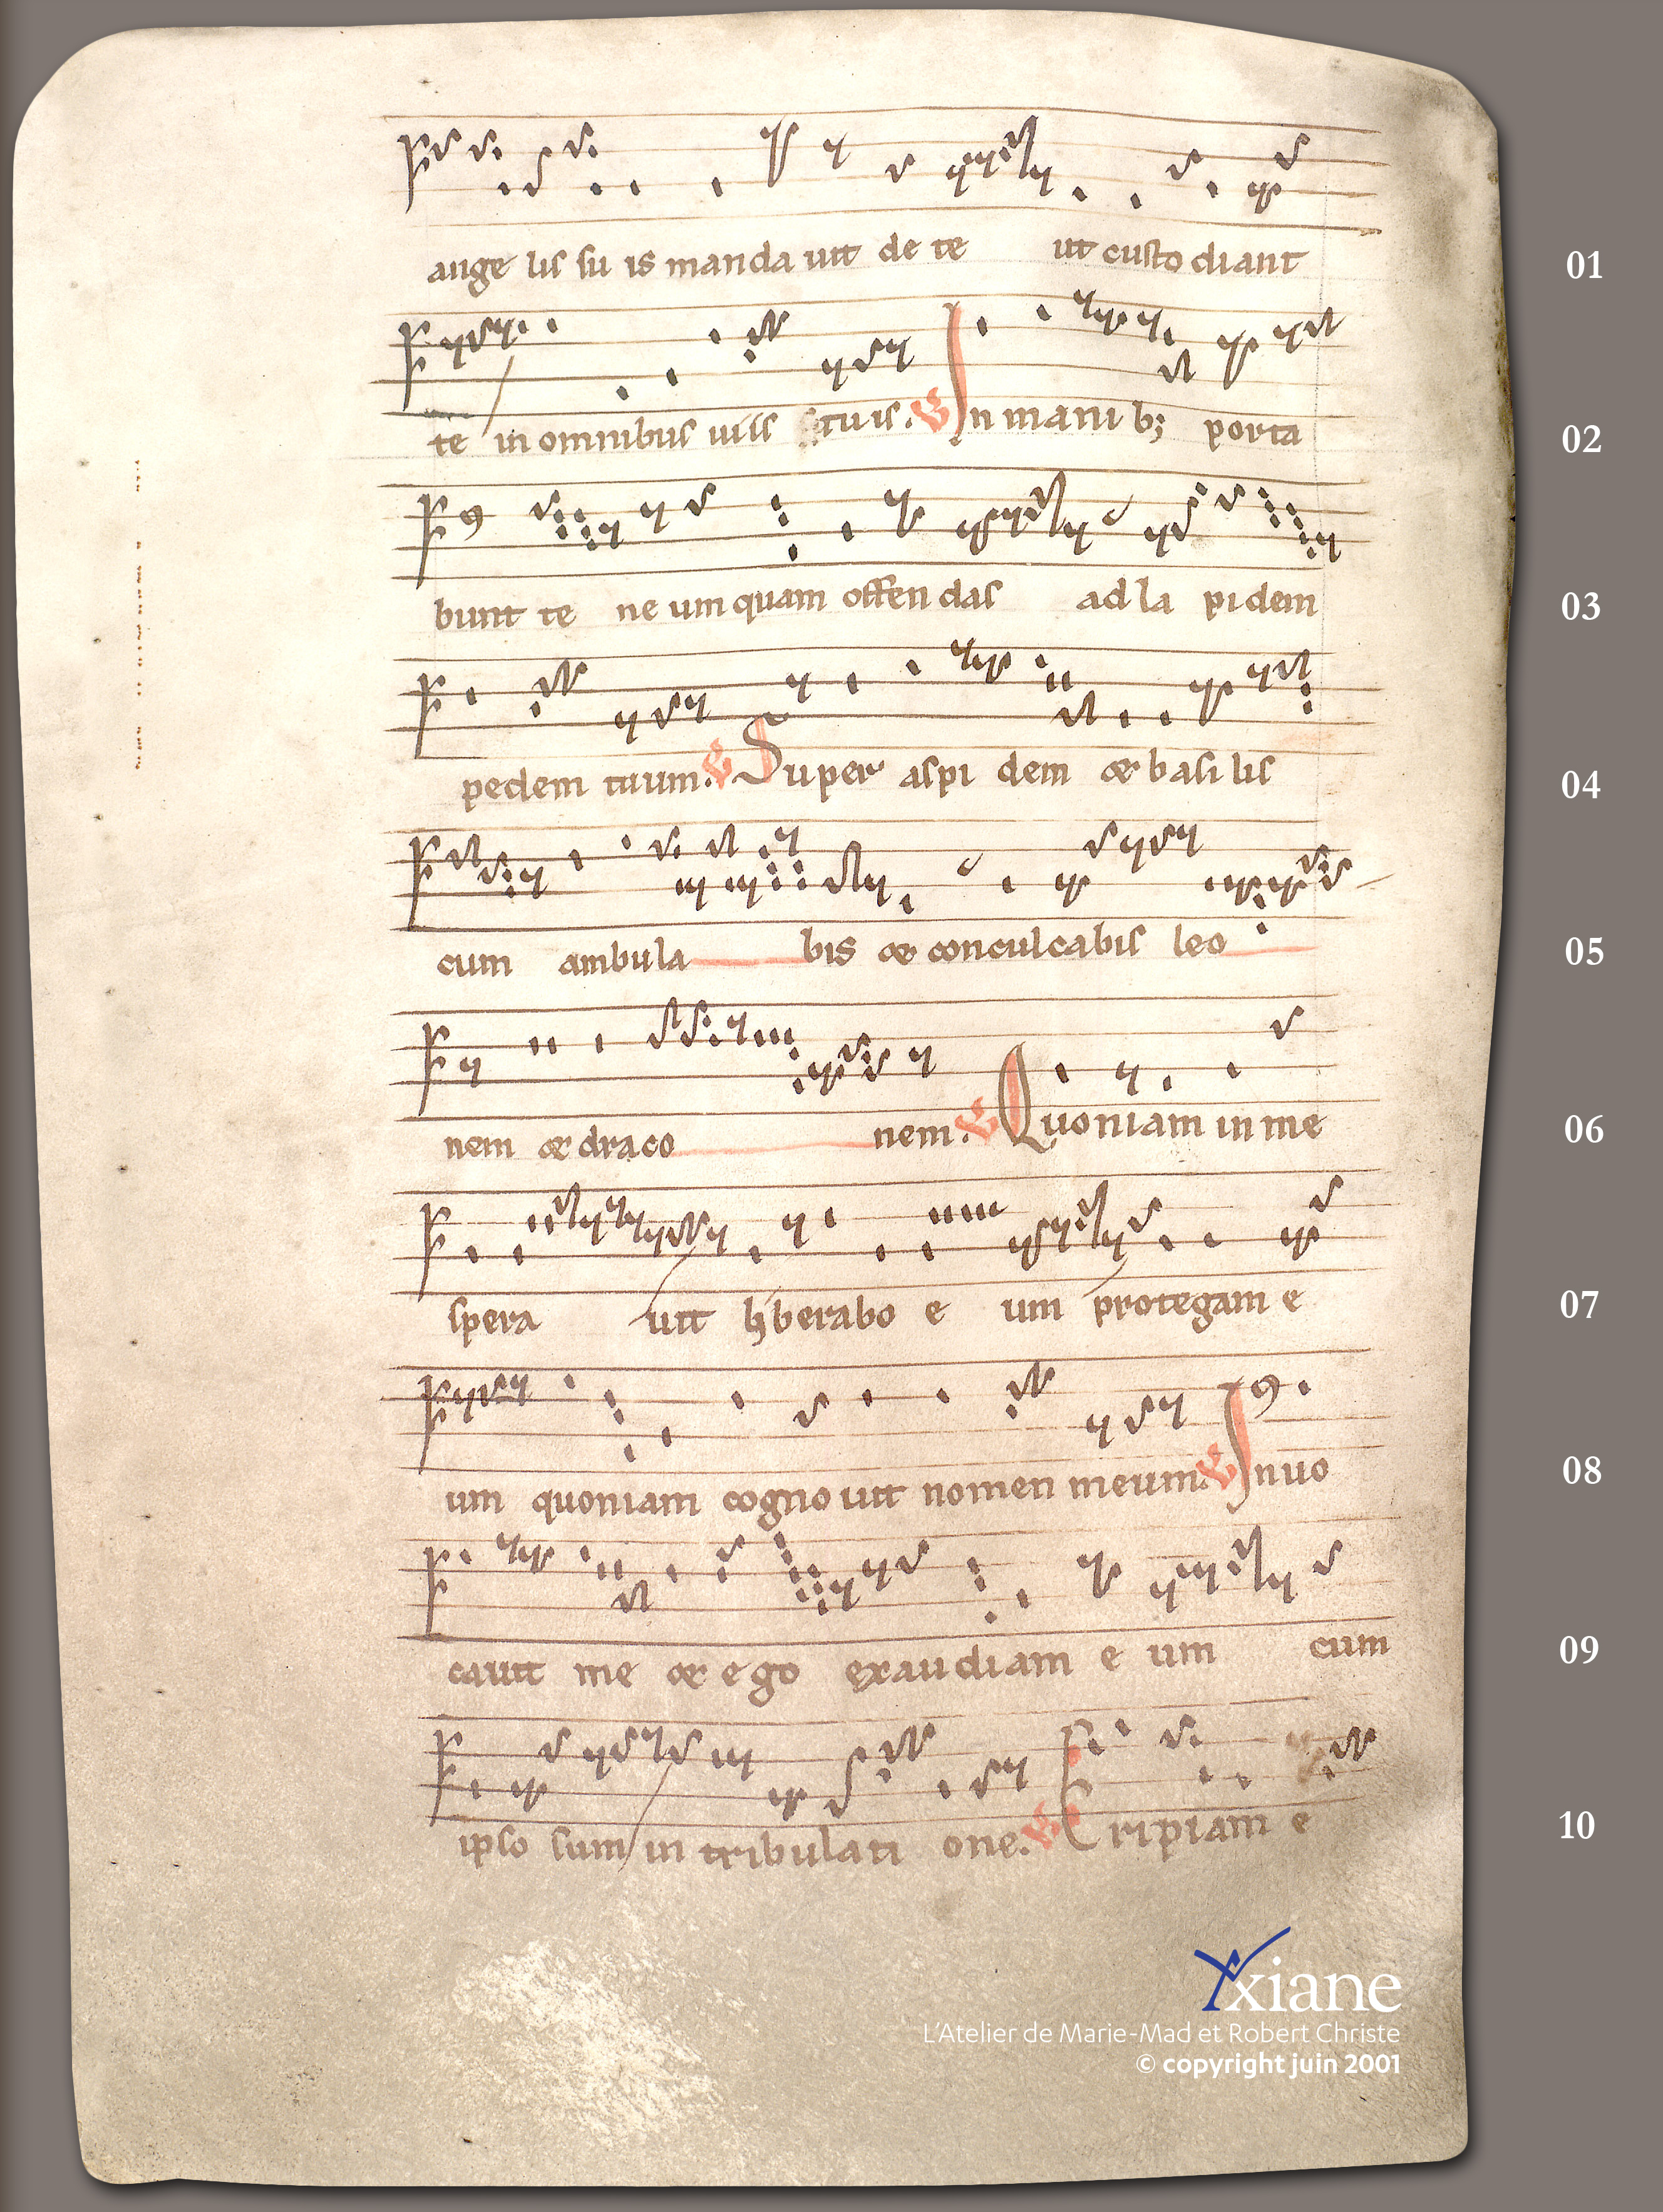 ange lis su is manda uit de te ut custo diant 01
te in omnibus uiis tuis. V In mani b; porta 02
bunt te ne um quam offen das ad la pidem 03
pedem tuum. V Super aspi dem & basi lis 04
cum ambula bis & conculcabis leo 05
nem & draco nem. V Quoniam in me 06
spera uit liberabo e um protegam e 07
um quoniam cogno uit nomen meum. V In uo 08
cauit me & ego exaudiam e um cum 09
ipso sum in tribulati one. V Eripiam e 10
Yxiane
L'Atelier de Marie-Mad et Robert Christe
© copyright juin 2001